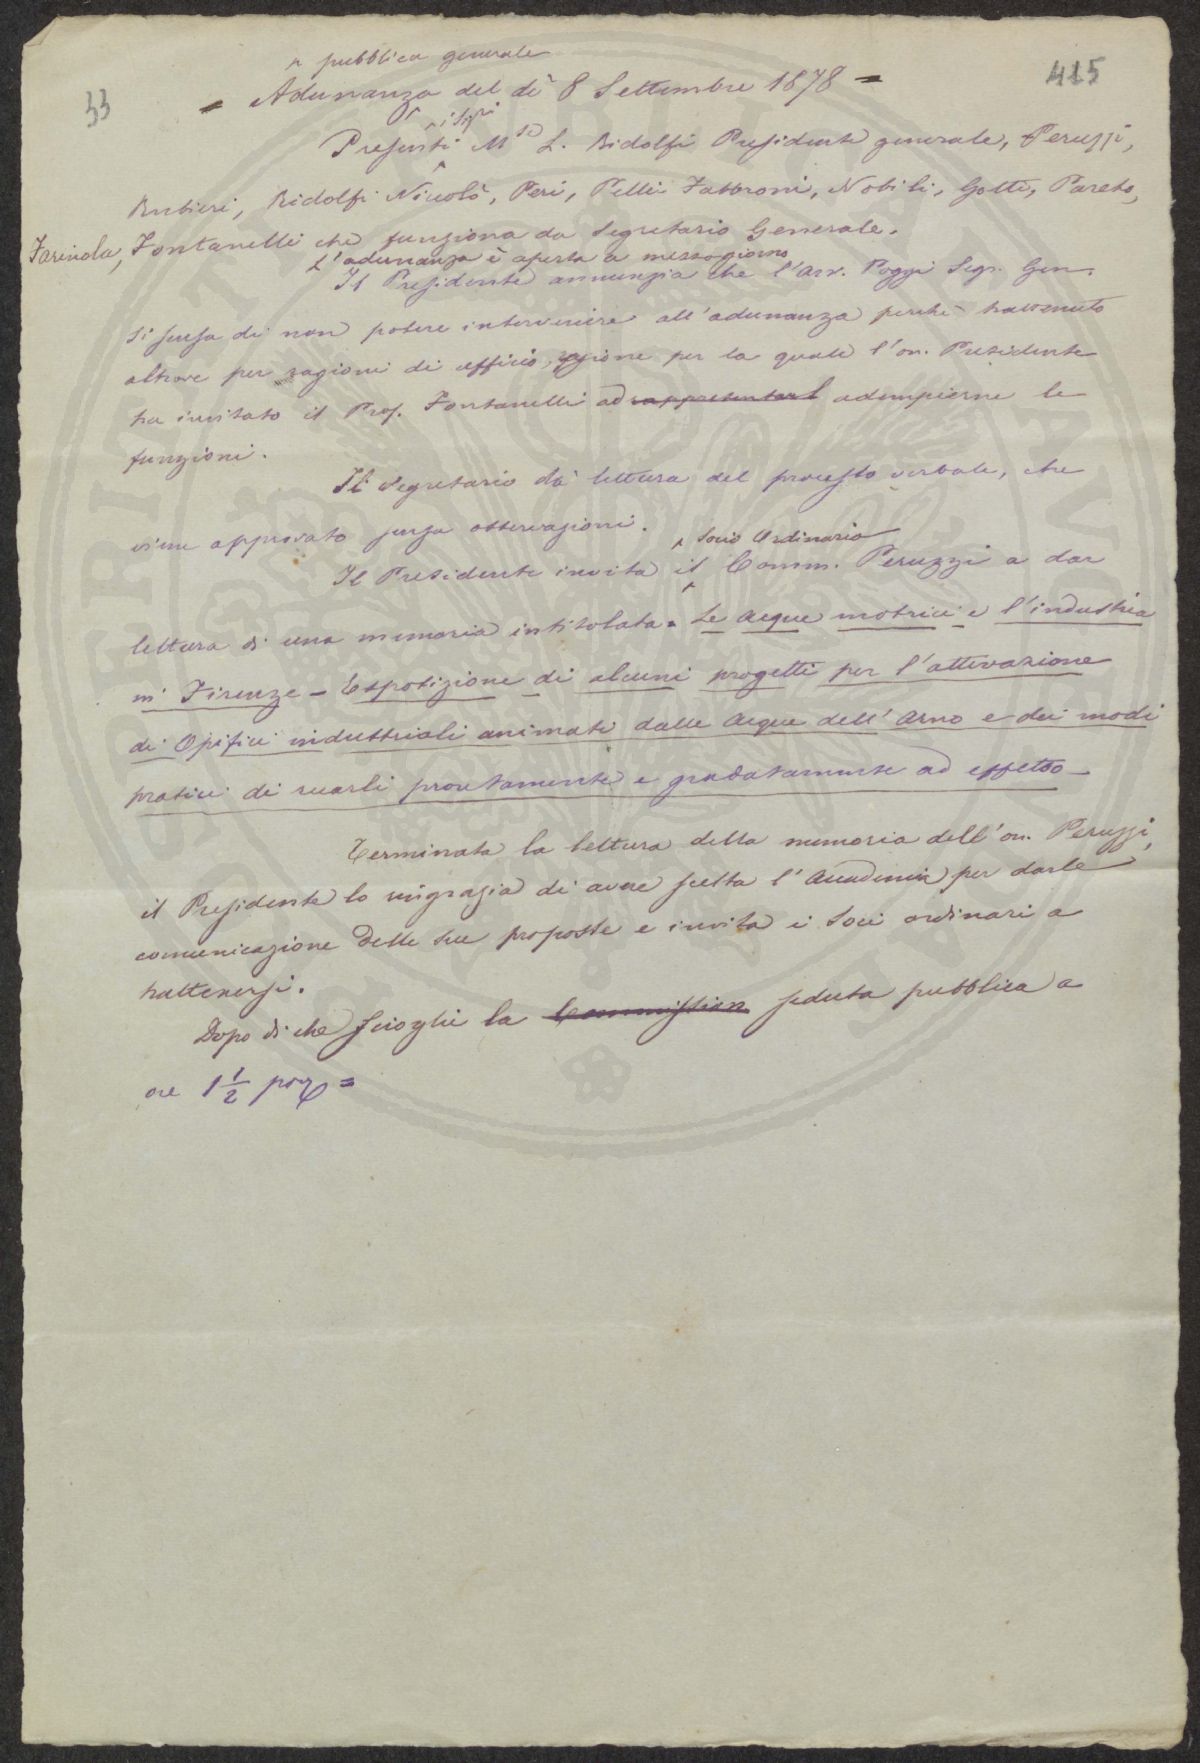 33
415
pubblica generale
Adunanza del dì 8 Settembre 1878
i Sigri
Presenti Mse L. Ridolfi Presidente generale, Peruzzi,
Rubieri, Ridolfi Niccolò, Peri, Pelli Fabbroni, Nobili, Gotti, Pareto,
Farinola, Fontanelli che funziona da Segretario Generale.
L'adunanza è aperta a mezzogiorno
Il Presidente annunzia che l'Avv. Poggi Segr. Gen.
si scusa di non potere intervenire all'adunanza perchè trattenuto
altrove per ragioni di ufficio, ragione per la quale l'on. Presidente
ha invitato il Prof. Fontanelli ad adempierne le
funzioni.
Il Segretario dà lettura del processo verbale, che
viene approvato senza osservazioni.
Socio Ordinario
Il Presidente invita il Comm. Peruzzi a dar
lettura di una memoria intitolata = Le Acque motrici e l'industria
in Firenze - Esposizione di alcuni progetti per l'attivazione
di Opifici industriali animati dalle Acque dell'Arno e dei modi
pratici di recarli prontamente e gradatamente ad effetto
Terminata la lettura della memoria dell'on. Peruzzi,
il Presidente lo ringrazia di avere scelta l'Accademia per darle
comunicazione delle sue proposte e invita i Soci ordinari a
trattenersi.
Dopo di che scioglie la Commission seduta pubblica a
ore 1 1/2 pom =